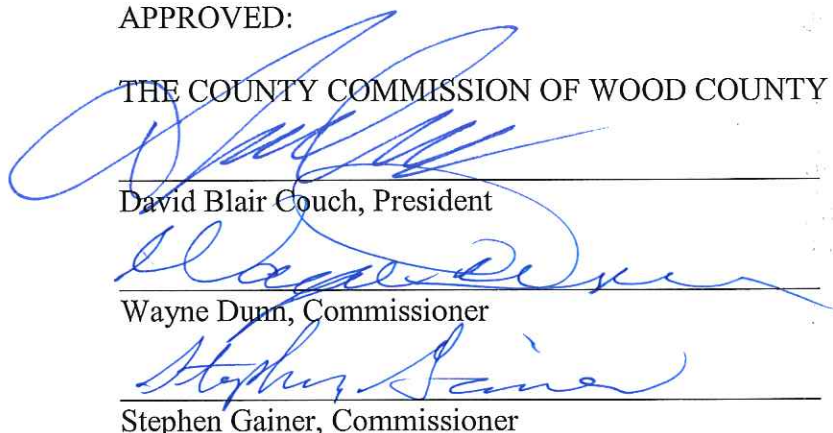 APPROVED:
THE COUNTY COMMISSION OF WOOD COUNTY
David Blair Couch, President
Wayne Dunn
Wayne Dunn, Commissioner
Stephen Gainer
Stephen Gainer, Commissioner